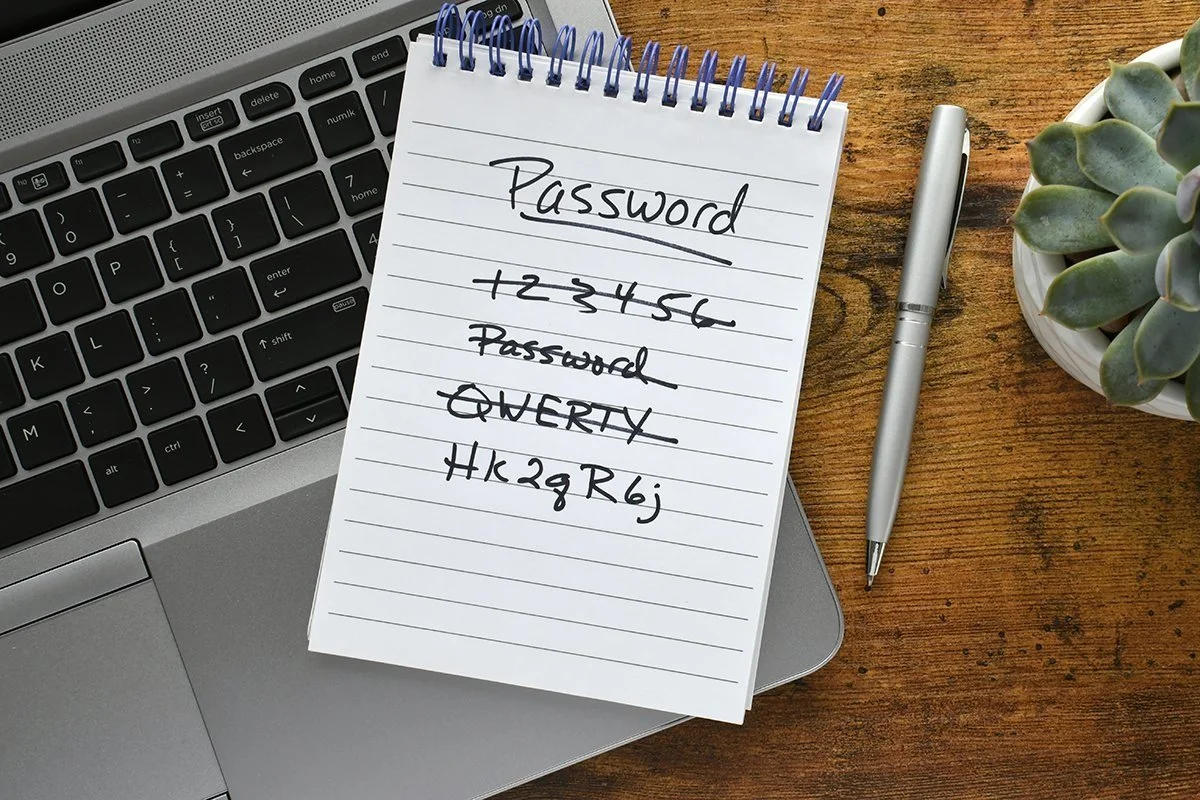 Password
123456
Password
QWERTY
Hk2qR6j
pg dn
end
home
delete
insert
prt sc
numlk
/
backspace
7
home
4
+
=
_
-
)
0
(
9
|
\
}
]
{
[
P
O
enter
"
'
:
;
L
K
pause
shift
?
/
>
.
<
,
M
ctrl
alt